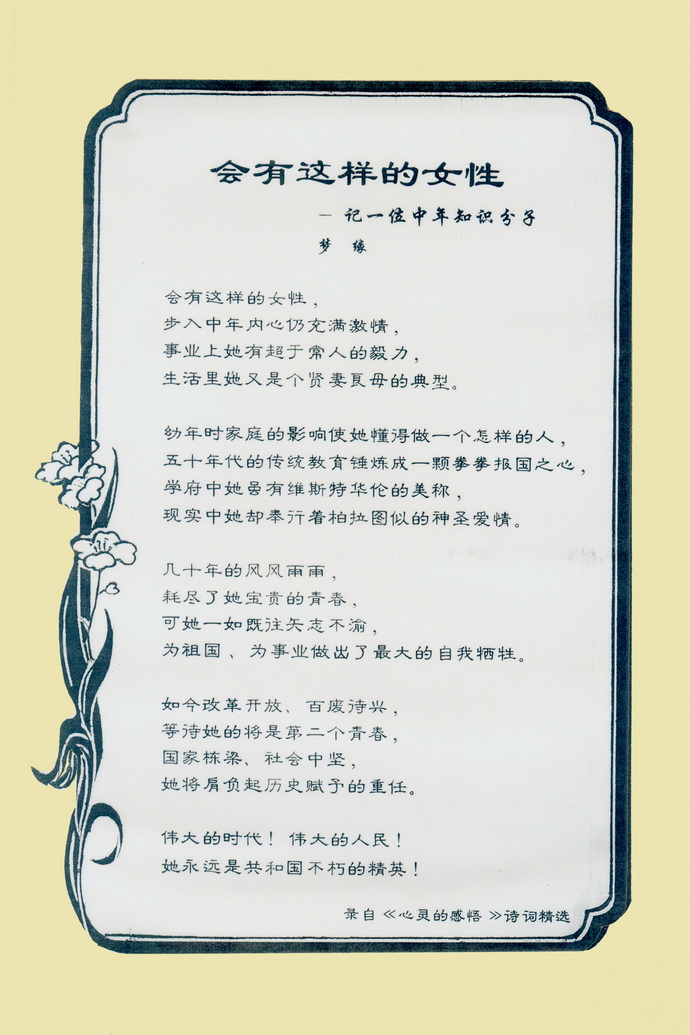 会有这样的女性
－记一位中年知识分子
梦 缘
会有这样的女性，
步入中年内心仍充满激情，
事业上她有超于常人的毅力，
生活里她又是个贤妻良母的典型。
幼年时家庭的影响使她懂得做一个怎样的人，
五十年代的传统教育锤炼成一颗拳拳报国之心，
学府中她虽有维斯特华伦的美称，
现实中她却奉行着柏拉图似的神圣爱情。
几十年的风风雨雨，
耗尽了她宝贵的青春，
可她一如既往矢志不渝，
为祖国、为事业做出了最大的自我牺牲。
如今改革开放、百废待兴，
等待她的将是第二个青春，
国家栋梁、社会中坚，
她将肩负起历史赋予的重任。
伟大的时代！伟大的人民！
她永远是共和国不朽的精英！
录自《心灵的感悟》诗词精选